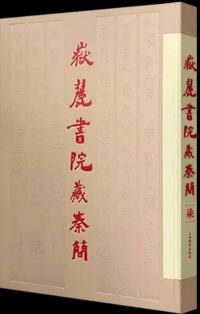 嶽麓書院藏秦簡
嶽麓書院藏秦簡
柒